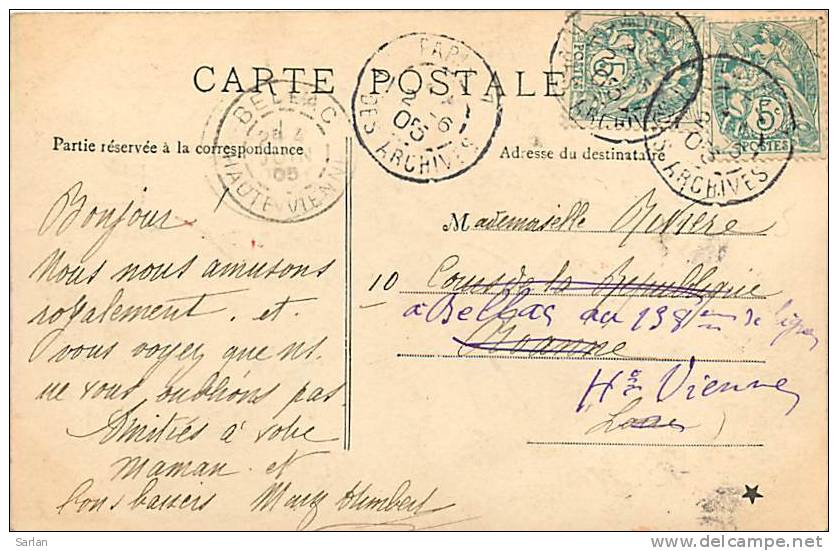 CARTE POSTALE
PARIS
2 - 6
05
DES ARCHIVES
BELLAC
JUIN
05
HAUTE-VIENNE
ARCHIVES
05
ARCHIVES
POSTES
POSTES
Partie réservée à la correspondance
Adresse du destinataire
Bonjour !
Nous nous amusons
royalement. et
vous voyez que ns.
ne vous oublions pas.
Amitiés à votre
maman et
bons baisers Mary Humbert
Mademoiselle Rivière
10 Cours de la République
à Bellac au 138 de ligne
Roanne
Hte Vienne
Loire
Sarlan
www.delcampe.net